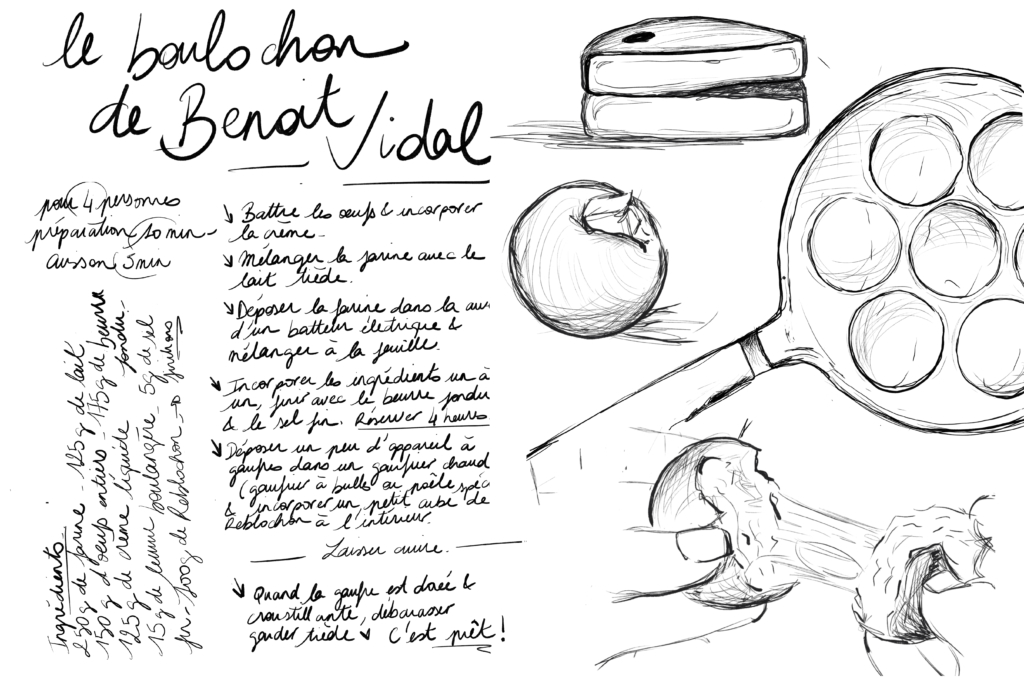 le boulochon
de Benoit Vidal
pour 4 personnes
préparation 20 min -
cuisson 5 min
Ingrédients
250 g de farine - 125 g de lait
150 g d'oeufs entiers - 175 g de beurre fondu -
125 g de crème liquide
15 g de levure boulangère - 5 g de sel
fin - 200 g de Reblochon →
↘ Battre les oeufs & incorporer
la crème -
↘ Mélanger la farine avec le
lait tiède.
↘ Déposer la farine dans la cu
d'un batteur électrique &
mélanger à la feuille.
↘ Incorporer les ingrédients un à
un, finir avec le beurre fondu
& le sel fin. Réserver 4 heures
↘ Déposer un peu d'appareil à
gaufres dans un gaufrier chaud
(gaufrier à bulls ou poêle spéc
& incorporer un petit cube de
Reblochon à l'intérieur.
Laisser cuire.
↘ Quand la gaufre est dorée &
croustillante, débarasser
garder tiède ↘ C'est prêt !